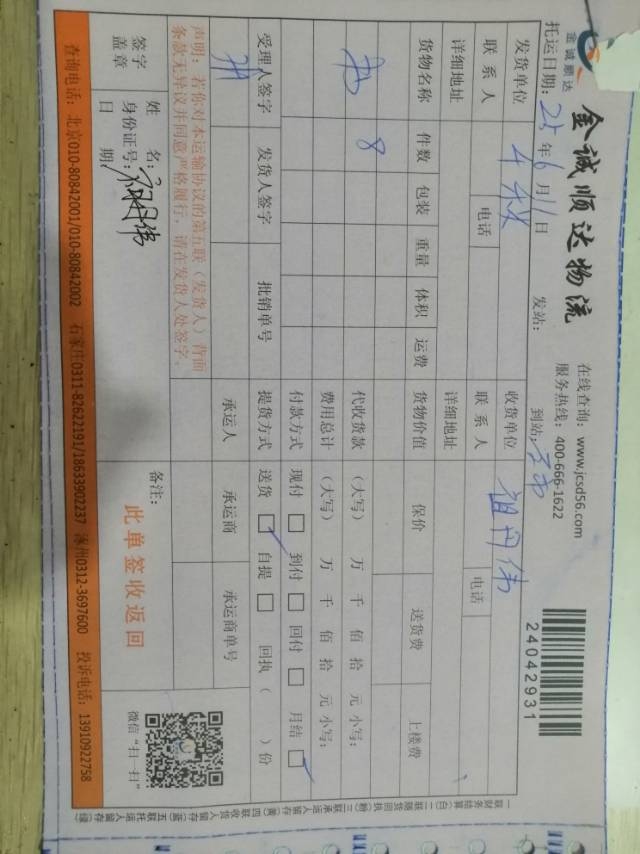 金诚顺达
金诚顺达物流
在线查询：www.jcsd56.com
服务热线：400-666-1622
24042931
托运日期：25年6月11日 发站： 到站：
发货单位 收货单位 祖丹伟
联系人 电话 联系人 电话
详细地址 详细地址
货物名称 件数 包装 重量 体积 运费 货物价值 保价 送货费 上楼费
8
代收货款 （大写） 万 仟 佰 拾 元 小写：
费用总计 （大写） 万 仟 佰 拾 元 小写：
付款方式 现付 □ 到付 □ 回付 □ 月结 □
受理人签字 发货人签字 批销单号 提货方式 送货 □ 自提 □ 回执（ ）份
承运人 承运商 承运商单号
声明：若你对本运输协议的第五联（发货人）背面
条款无异议并同意严格履行，请在发货人处签字。
签字
盖章
姓 名：祖丹伟
身份证号：
日 期：
备注：
此单签收返回
微信“扫一扫”
查询电话：北京010-80842001/010-80842002 石家庄0311-82622191/18633902237 涿州0312-3697600 投诉电话：13910922758
一联财务结算(白) 二联随货回执(粉) 三联承运人留存(黄) 四联收货人留存(蓝) 五联托运人留存(绿)